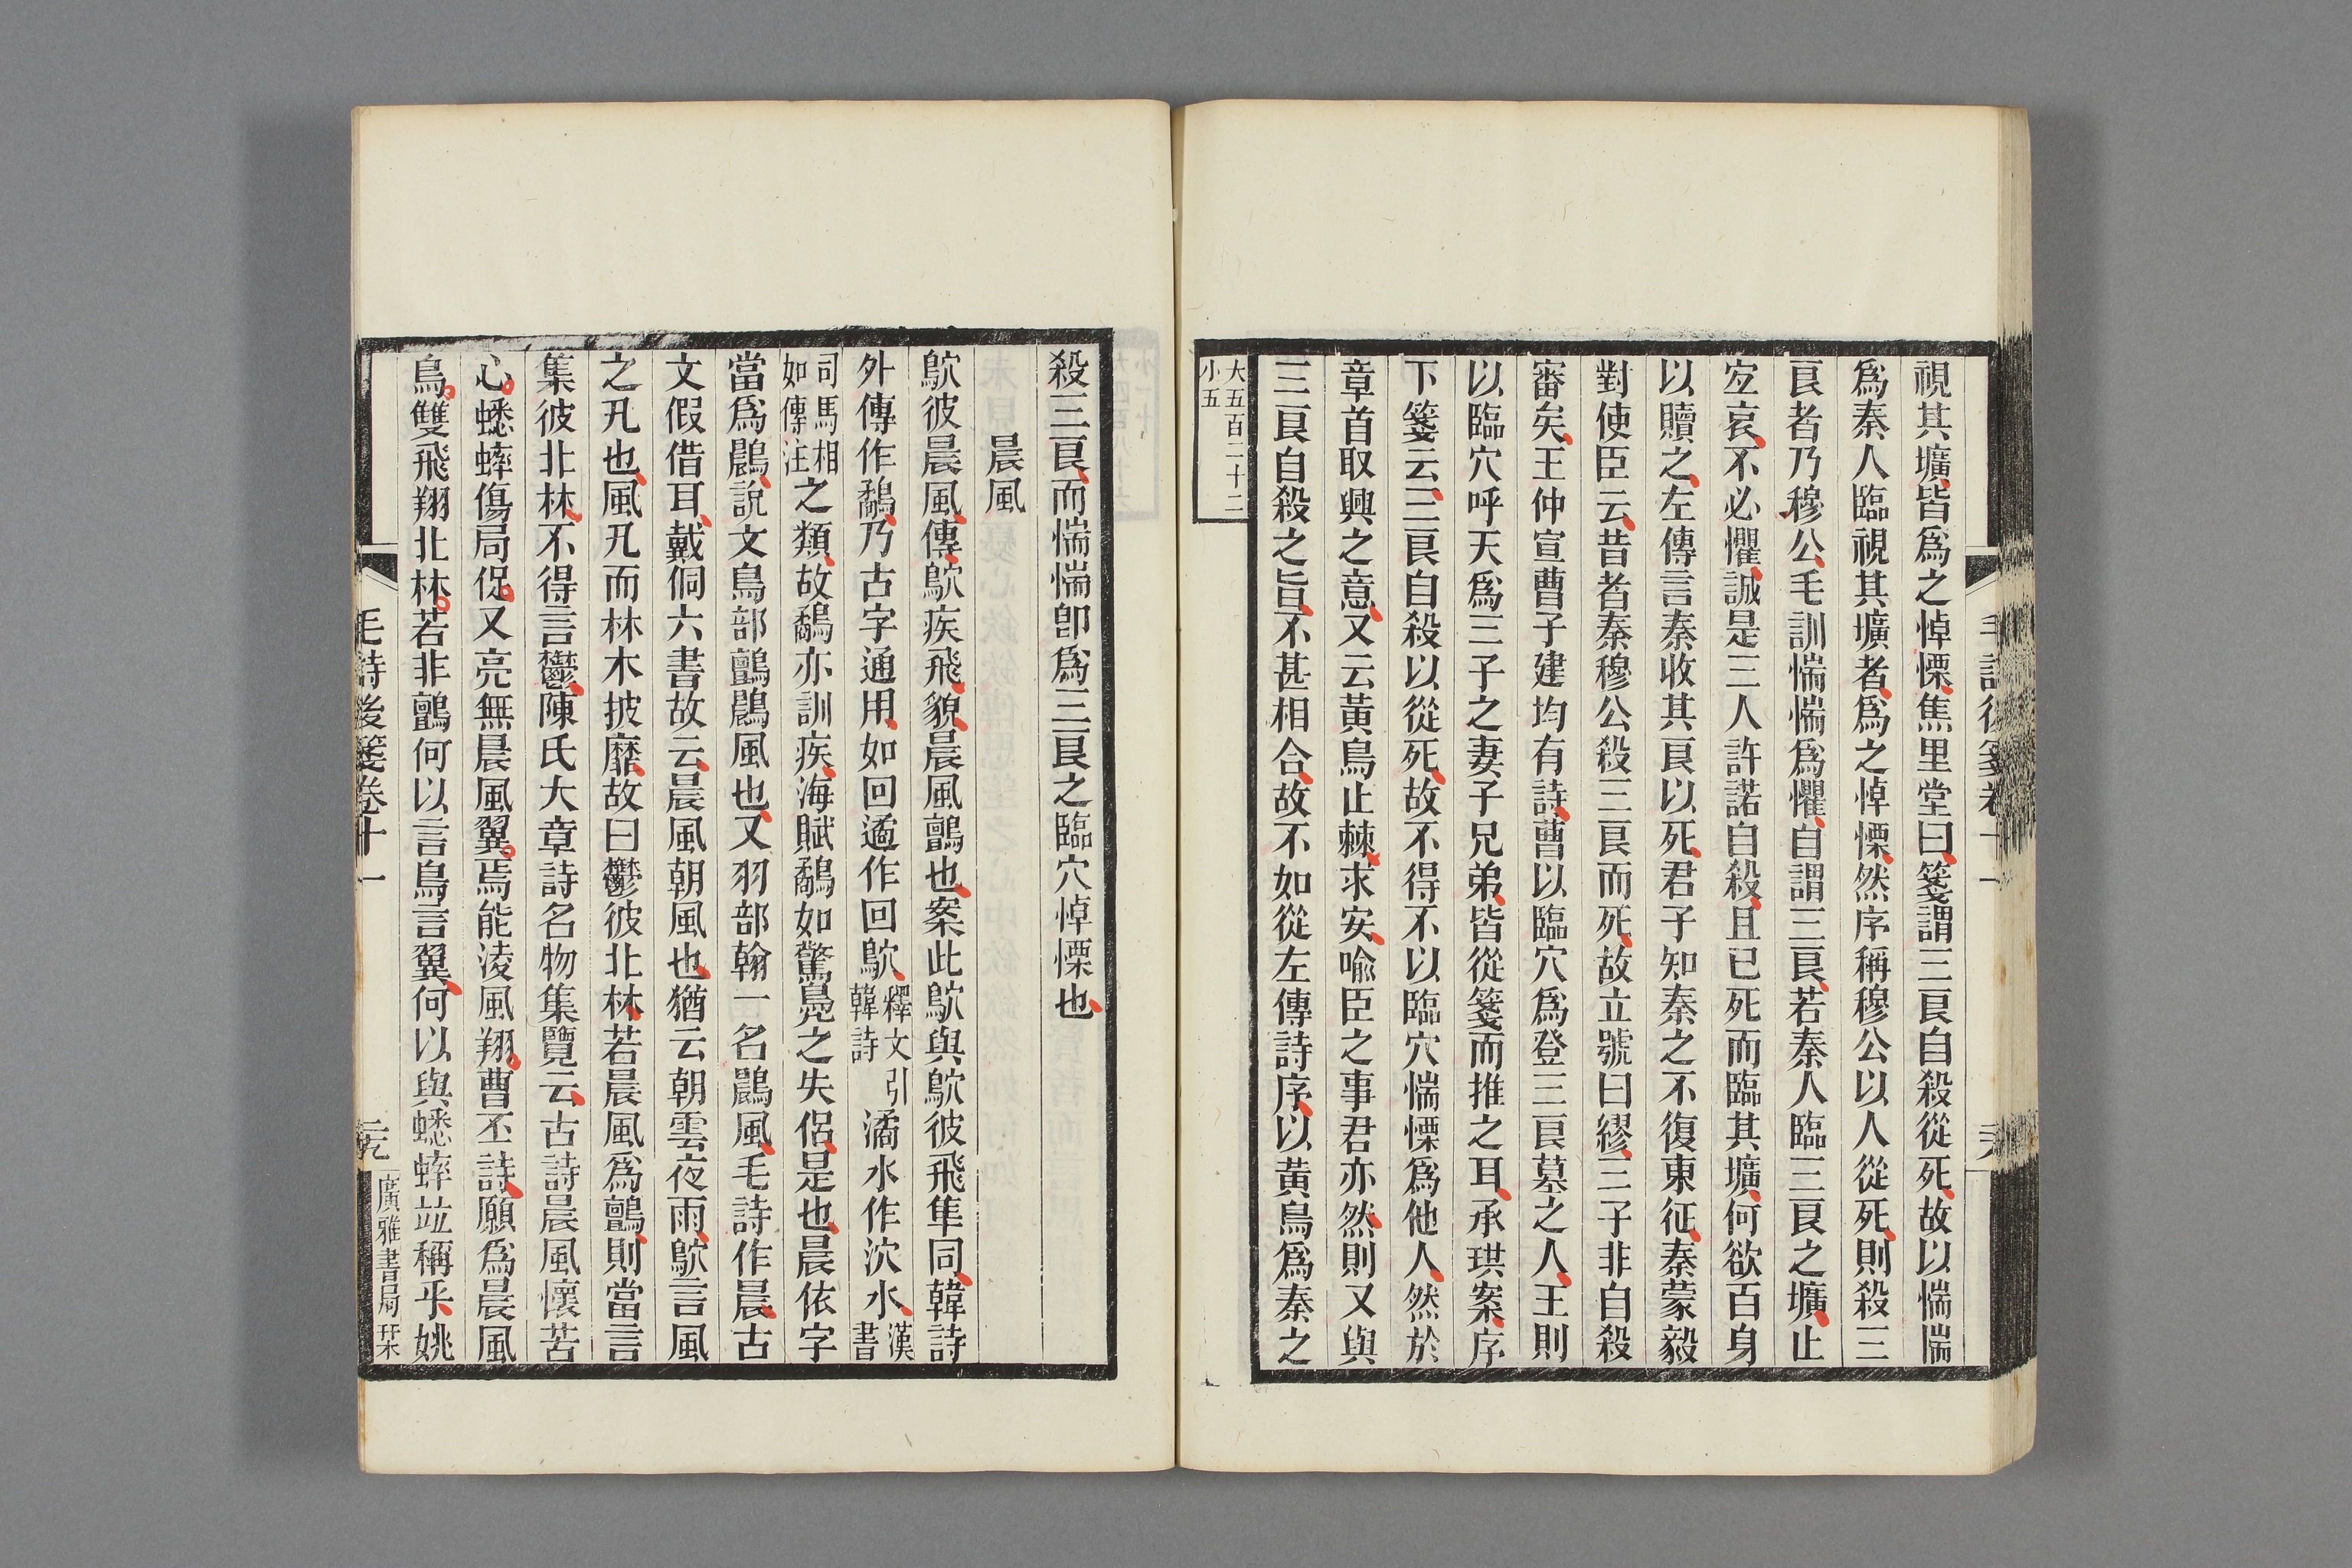 視其壙皆爲之悼慄焦里堂曰箋謂三良自殺從死故以惴惴
爲秦人臨視其壙者爲之悼慄然序稱穆公以人從死則殺三
良者乃穆公毛訓惴惴爲懼自謂三良若秦人臨三良之壙止
宐哀不必懼誠是三人許諾自殺且已死而臨其壙何欲百身
以贖之左傳言秦收其良以死君子知秦之不復東征秦蒙毅
對使臣云昔者秦穆公殺三良而死故立號曰繆三子非自殺
審矣王仲宣曹子建均有詩曹以臨穴爲登三良墓之人王則
以臨穴呼天爲三子之妻子兄弟皆從箋而推之耳承珙案序
下箋云三良自殺以從死故不得不以臨穴惴慄爲他人然於
章首取興之意又云黃鳥止棘求安喻臣之事君亦然則又與
三良自殺之旨不甚相合故不如從左傳詩序以黃鳥爲秦之
大五百二十二
小五
毛詩後箋卷十一
殺三良而惴惴卽爲三良之臨穴悼慄也
晨風
鴥彼晨風傳鴥疾飛貌晨風鸇也案此鴥與鴥彼飛隼同韓詩
外傳作鷸乃古字通用如回遹作回鴥釋文引韓詩潏水作沇水漢書
司馬相如傳注之類故鷸亦訓疾海賦鷸如驚鳧之失侶是也晨依字
當爲鷐說文鳥部鸇鷐風也又羽部翰一名鷐風毛詩作晨古
文假借耳戴侗六書故云晨風朝風也猶云朝雲夜雨鴥言風
之凡也風凡而林木披靡故曰鬱彼北林若晨風爲鸇則當言
集彼北林不得言鬱陳氏大章詩名物集覽云古詩晨風懷苦
心蟋蟀傷局促又亮無晨風翼焉能淩風翔曹丕詩願爲晨風
鳥雙飛翔北林若非鸇何以言鳥言翼何以與蟋蟀竝稱乎姚
毛詩後箋卷十一
廣雅書局栞